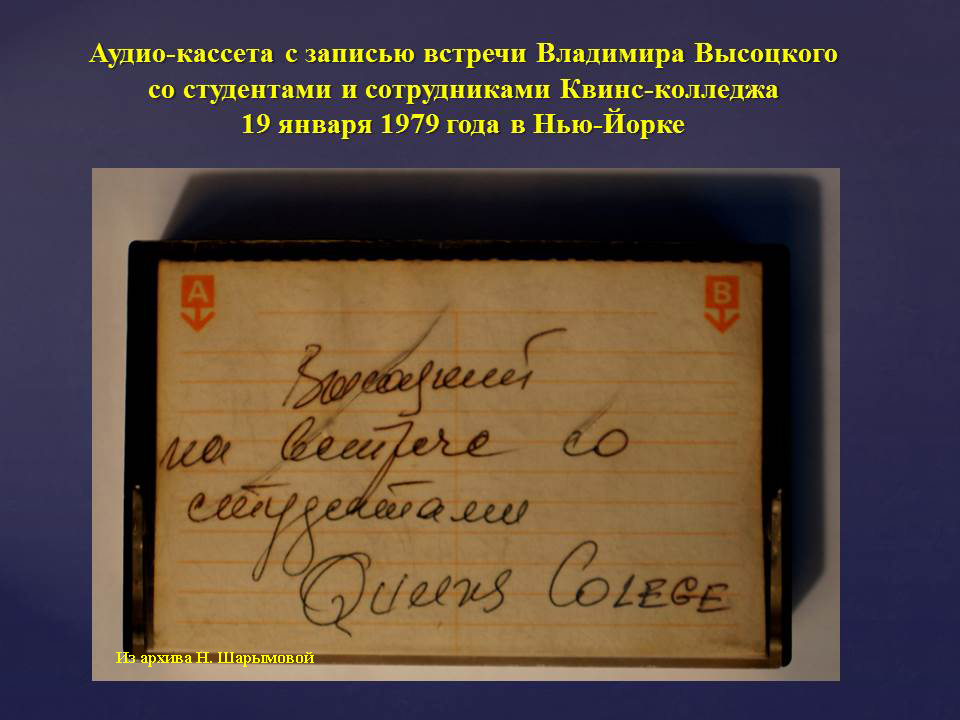 Аудио-кассета с записью встречи Владимира Высоцкого
со студентами и сотрудниками Квинс-колледжа
19 января 1979 года в Нью-Йорке
A B
Высоцкий
на встрече со
студентами
Queens COLEGE
Из архива Н. Шарымовой